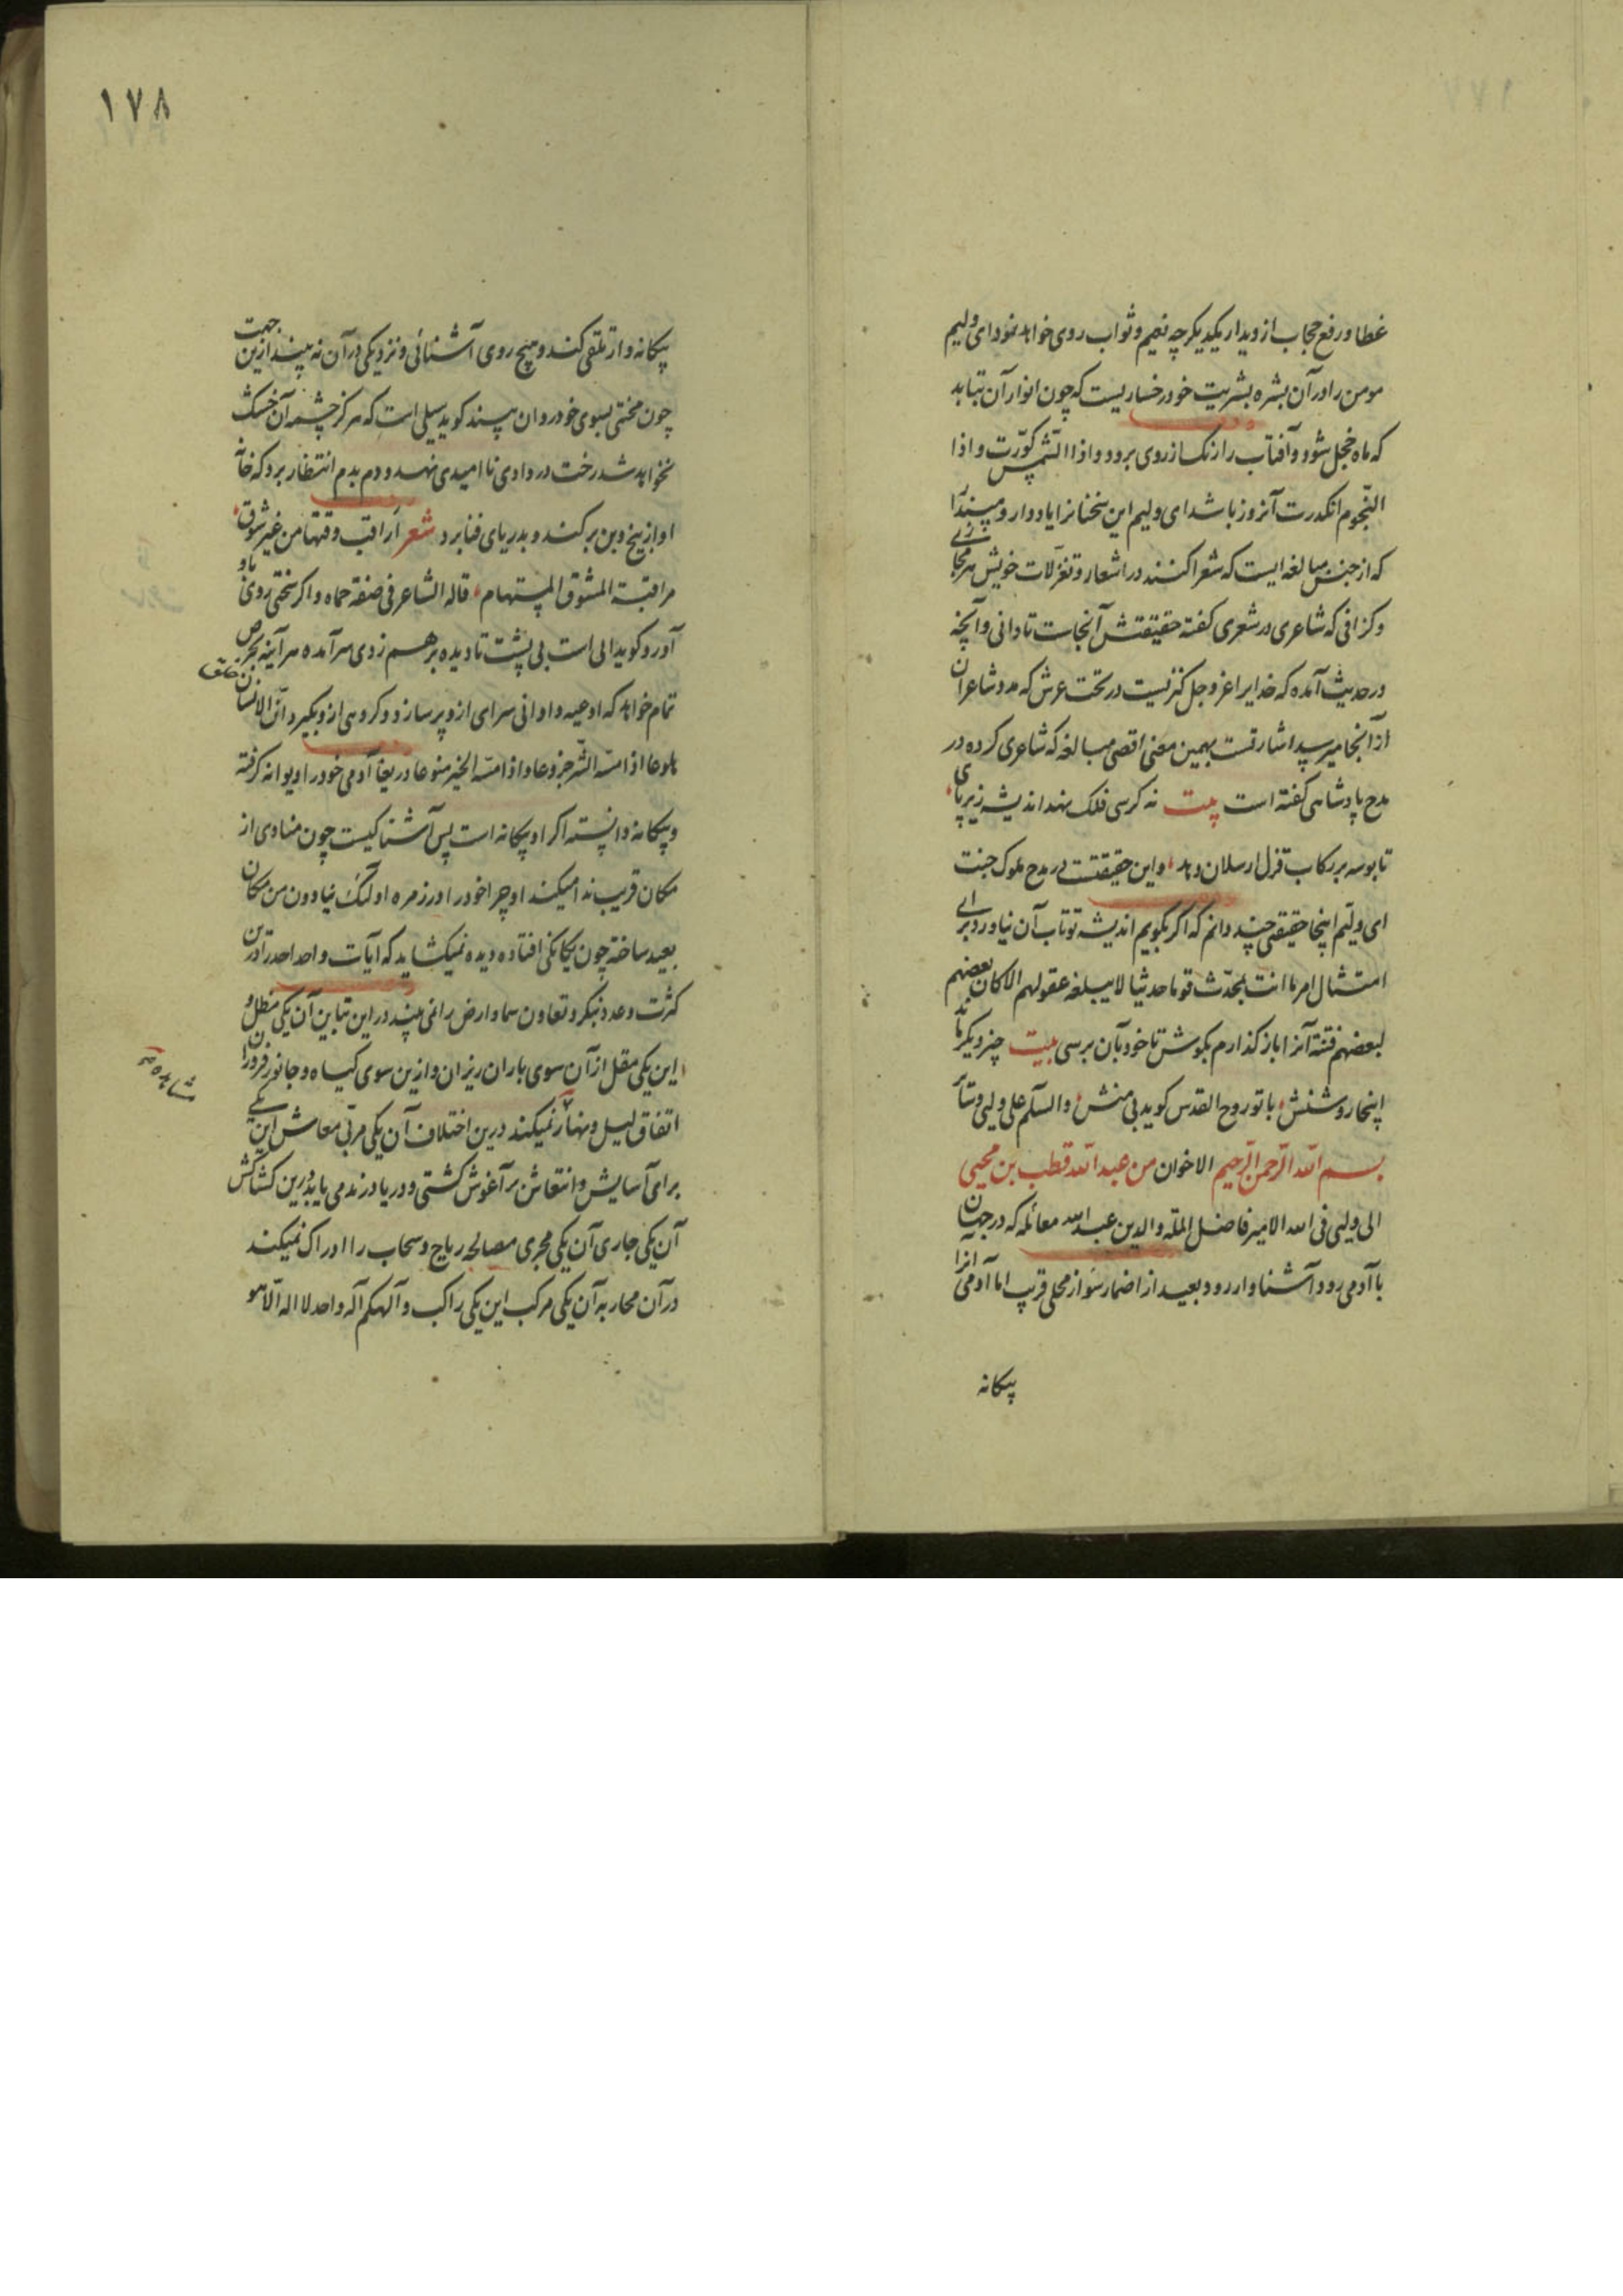 غطا و رفع حجاب از دیدار یکدیگر چه نعیم و ثواب روی خواهد نمود ای ولیم
مومن را در آن بشره بشریت خود رخساریست که چون انوار آن بتابد
که ماه خجل شود و آفتاب را رنگ از روی برود و اذا الشمس کوّرت و اذا
النّجوم انکدرت آنروز باشد ای ولیم این سخنانرا یاد دار و مپندار
که از جنس مبالغه ایست که شعرا کنند در اشعار و تغزّلات خویش هر مجازی
و کزافی که شاعری در شعری کفته حقیقتش آنجاست تا دانی و آنچه
در حدیث آمده که خدایرا عز و جل کنزیست در تحت عرش که مدد شاعران
از آنجا میرسد اشارتست بهمین معنی اقصی مبالغه که شاعری کرده در
مدح پادشاهی کفته است بیت نه کرسی فلک نهد اندیشه زیر پای
تا بوسه بر رکاب قزل ارسلان دهد و این حقیقتست در مدح ملوک جنت
ای ولیّم اینجا حقیقتی چند دانم که اکر بکویم اندیشه تو تاب آن نیاورد برای
امتثال امر ما انت بمحدّث قوما حدیثا لا یبلغه عقولهم الا کان بعضهم
لبعضهم فتنة آنرا باز کذارم بکوش تا خود بآن برسی بیت چیز دیکر ماند
اینجا روشنش با تو روح القدس کوید بی منش والسلم علی ولیی و سائر
الاخوان بسم الله الرّحمن الرّحیم من عبد الله قطب بن محیی
الی ولیی فی الله الامیر فاضل الملة والدین عبد الله معا ثمله که در جهان
با آدمی رود آشنا وار رود و بعید از اضمار سوء از محلی قریب اما آدمی آنرا
بیکانه
۱۷۸
بیکانه وار تلقی کند و هیچ روی آشنائی و نزدیکی در آن نه بیند ازین جهت
چون محنتی بسوی خود روان بیند کوید سیلی است که هرکز چشمه آن خشک
نخواهد شد رخت در وادی ناامیدی نهد و دم بدم انتظار برد که خانه
او از بیخ و بن برکند و بدریای فنا برد شعر اراقب وقتها من غیر شوق
مراقبة المشوق المستهام قاله الشاعر فی صفة حماه و اکر نعمتی روی باو
آورد کوید الی است بی پشت تا دیده بر هم زدی سرآمده هرآینه بحرص
تمام خواهد که اوعیه و اوانی سرای ازو پر سازد و کروهی ازو بکیرد انّ الانسان خلق
هلوعا اذا مسّه الشّر جزوعا و اذا مسّه الخیر منوعا دریغا آدمی خود را دیوانه کرفته
و بیکانه دانسته اکر او بیکانه است پس آشنا کیست چون منادی از
مکان قریب ندا میکند او چرا خود را در زمره اولئک ینادون من مکان
بعید ساخته چون بیکانکی افتاده دیده نمیکشاید که آیات واحد احد را درین
کثرت و عدد بنکرد و تعاون سما و ارض را نمی بیند در این تباین آن یکی مظل و
این یکی مقل از آن سوی باران ریزان و ازین سوی کیاه و جانور فروزان
مشاهده
اتفاق لیل و نهار نمیکند درین اختلاف آن یکی مربّی معاش این یکی
برای آسایش و انتعاش بر آغوش کشتی و دریا در نمی یابد درین کشاکش
آن یکی جاری آن یکی مجری مصالحه ریاح و سحاب را ادراک نمیکند
در آن محاربه آن یکی مرکب این یکی راکب و آلهکم آله واحد لا اله الّا هو